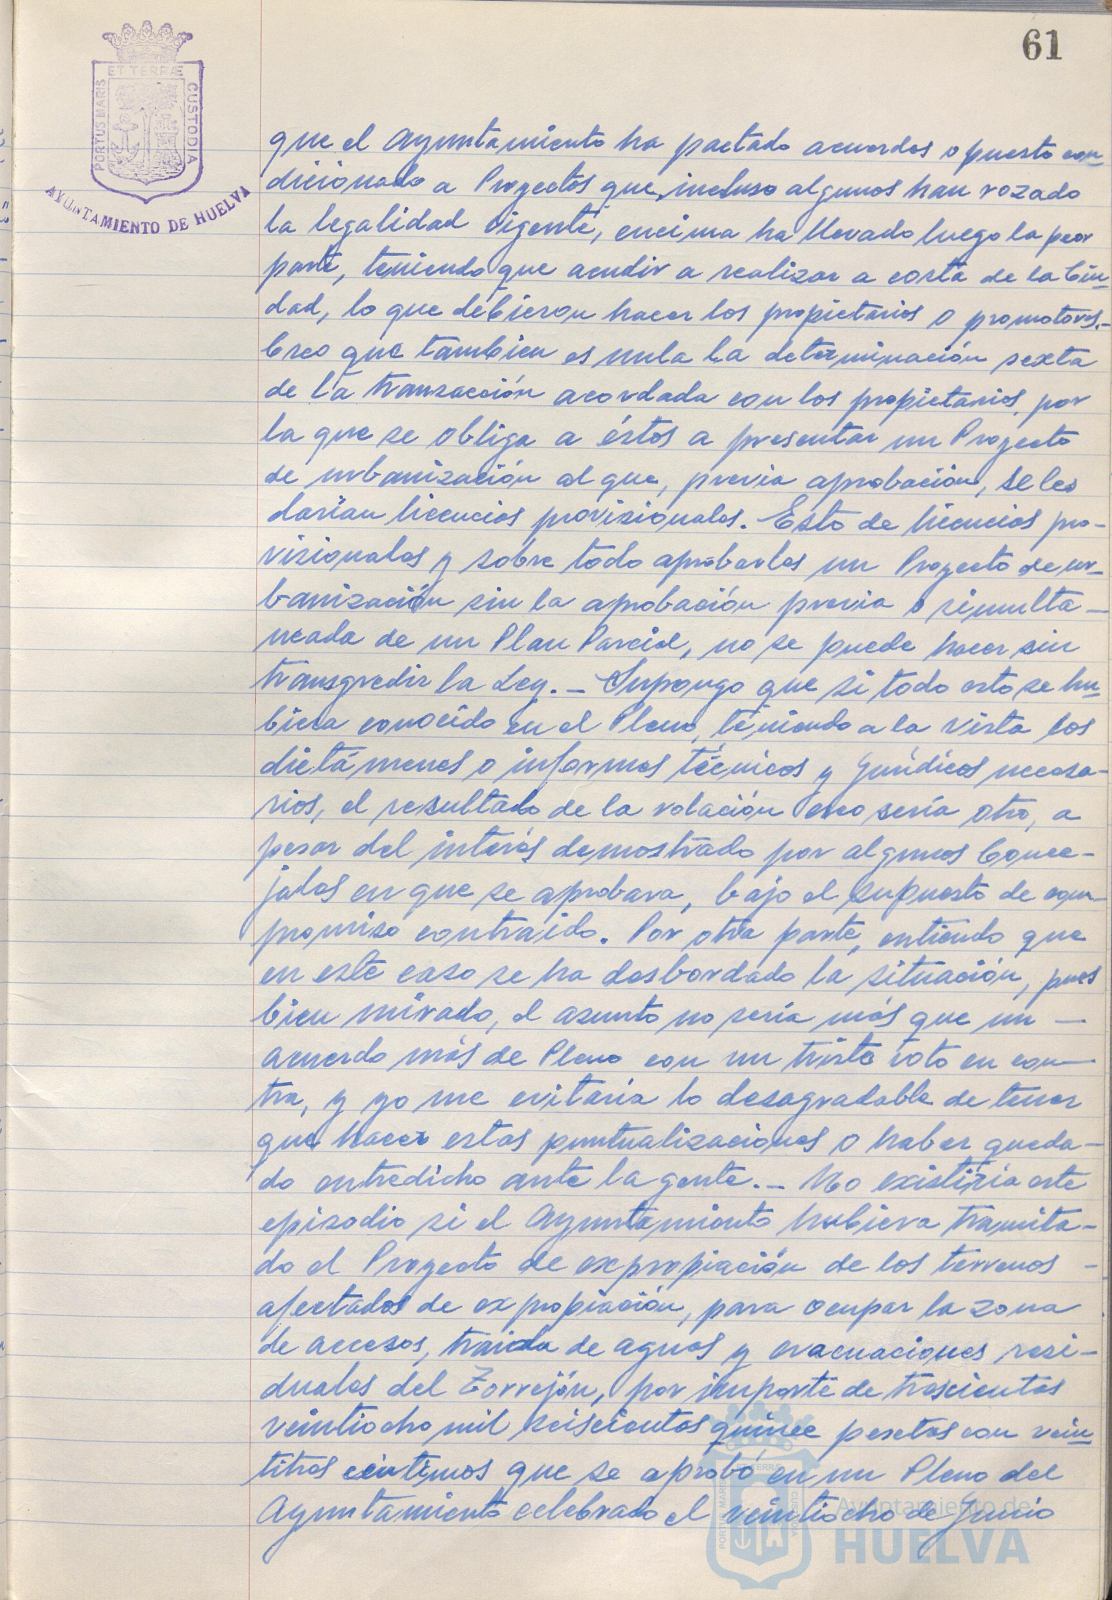 61
ET TERRÆ
PORTUS MARIS
CUSTODIA
AYUNTAMIENTO DE HUELVA
que el Ayuntamiento ha pactado acuerdos o puesto con-
dicionado a Proyectos que, incluso algunos han rozado
la legalidad vigente, encima ha llevado luego la peor
parte, teniendo que acudir a realizar a costa de la Ciu-
dad, lo que debieron hacer los propietarios o promotores.-
Creo que tambien es nula la determinación sexta
de la transacción acordada con los propietarios, por
la que se obliga a éstos a presentar un Proyecto
de urbanización al que, previa aprobación, se les
darian licencias provisionales. Esto de licencias pro-
visionales y sobre todo aprobarles un Proyecto de ur-
banización sin la aprobación previa o simulta-
neada de un Plan Parcial, no se puede hacer sin
transgredir la Ley.- Supongo que si todo esto se hu-
biera conocido en el Pleno, teniendo a la vista los
dictámenes o informes técnicos y jurídicos necesa-
rios, el resultado de la votación creo sería otro, a
pesar del interés demostrado por algunos Conce-
jales en que se aprobara, bajo el supuesto de com-
promiso contraido. Por otra parte, entiendo que
en este caso se ha desbordado la situación, pues
bien mirado, el asunto no sería más que un -
acuerdo más de Pleno con un triste voto en con-
tra, y yo me evitaría lo desagradable de tener
que hacer estas puntualizaciones o haber queda-
do entredicho ante la gente.- No existiría este
episodio si el Ayuntamiento hubiera tramita-
do el Proyecto de expropiación de los terrenos -
afectados de expropiación, para ocupar la zona
de accesos, traida de aguas y evacuaciones resi-
duales del Torrejón, por importe de trescientas
veintiocho mil seiscientas quince pesetas con vein-
titres centimos que se aprobó en un Pleno del
Ayuntamiento celebrado el veintiocho de Junio
ET TERRÆ
PORTUS MARIS
CUSTODIA
Ayuntamiento de
HUELVA